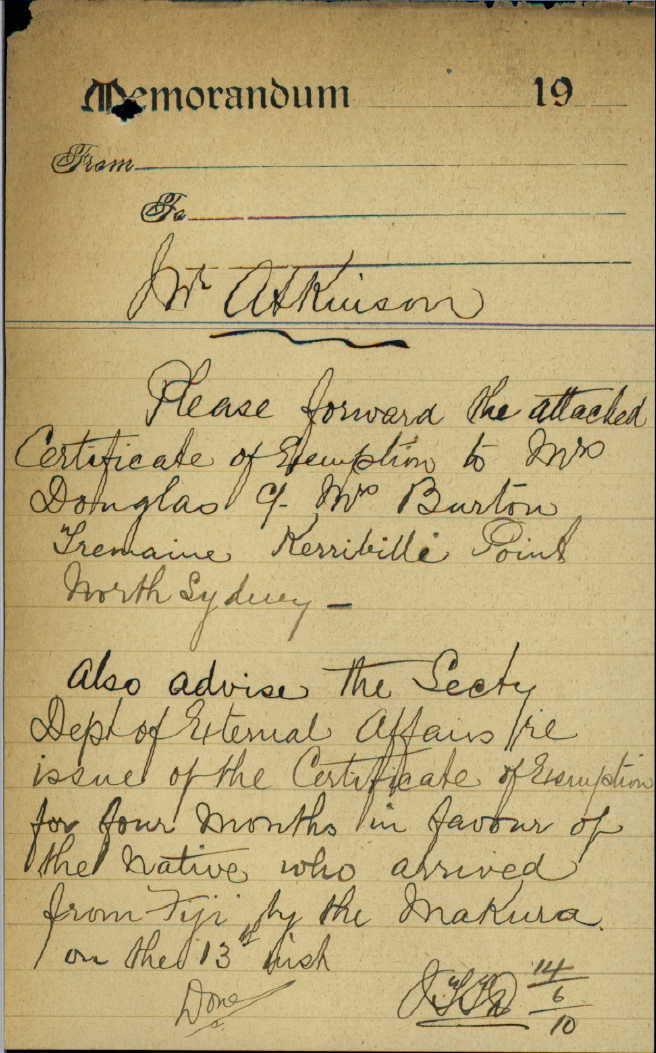 Memorandum 19
From
To
Mr Atkinson
Please forward the attached
Certificate of Exemption to Mrs
Douglas c/- Mrs Burton
"Tremaine Kerribille Point
North Sydney —
Also advise the Secty
Dept of External Affairs re
issue of the Certificate of Exemption
for four months in favour of
the Native who arrived
from Fiji by the Makura.
on the 13th inst
Done
14/6/10